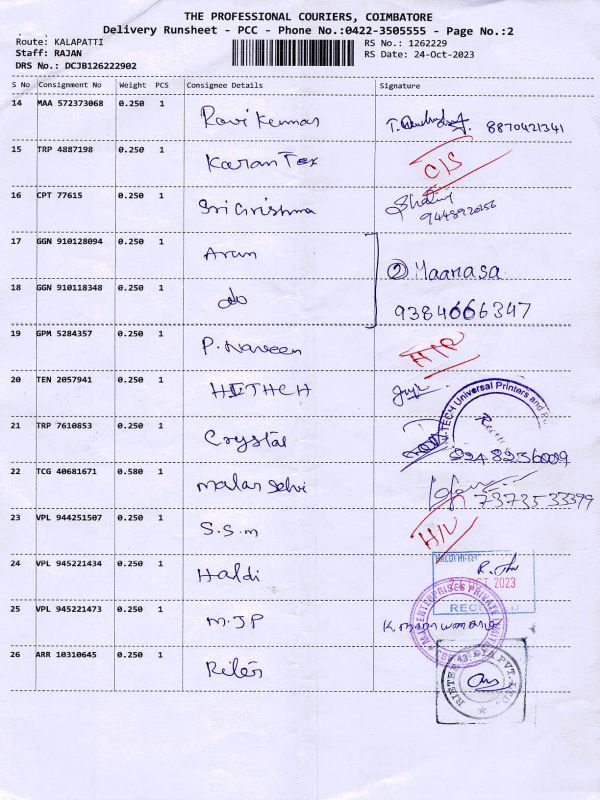 THE PROFESSIONAL COURIERS, COIMBATORE
Delivery Runsheet - PCC - Phone No.:0422-3505555 - Page No.:2
Route: KALAPATTI
RS No.: 1262229
Staff: RAJAN
RS Date: 24-Oct-2023
DRS No.: DCJB126222902
S No Consignment No Weight PCS Consignee Details Signature
14 MAA 572373068 0.250 1 Ravi Kumar 8870421341
15 TRP 4887198 0.250 1 Karan Tex C/S
16 CPT 77615 0.250 1 Sri Grishma
17 GGN 910128094 0.250 1 Arun
② Maanasa
18 GGN 910118348 0.250 1 do 9384666347
19 GPM 5284357 0.250 1 P. Naveen
20 TEN 2057941 0.250 1 HITHCH
V-TECH Universal Printers and
21 TRP 7610853 0.250 1 Crystal
9248236009
22 TCG 40681671 0.580 1 malar selvi
7373533399
23 VPL 944251507 0.250 1 S.S.m
24 VPL 945221434 0.250 1 Haldi
HALDI HI-TE
OCT 2023
25 VPL 945221473 0.250 1 M.JP
ENTERPRISES PRIVATE
26 ARR 10310645 0.250 1
PVT